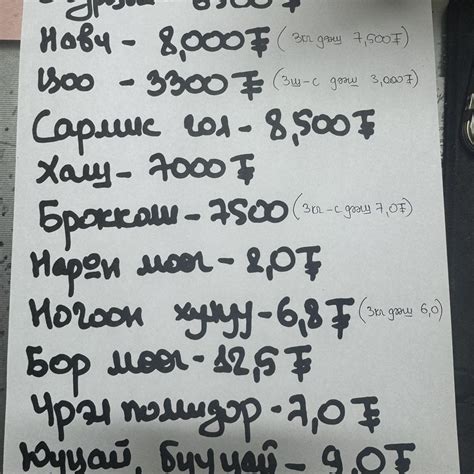 Новч - 8,000₮ (3кг дээш 7,500₮)
Цоо - 3300₮ (3ш-с дээш 3,000₮)
Сармис гол - 8,500₮
Хаш - 7000₮
Брокколи - 7500 (3кг-с дээш 7,0₮)
Нарӫн мөөг - 2,0₮
Ногоон хулуу - 6,8₮ (3кг дээш 6,0)
Бор мөөг - 12,5₮
Үрэл помидор - 7,0₮
Юуцай, Бууцай - 9,0₮